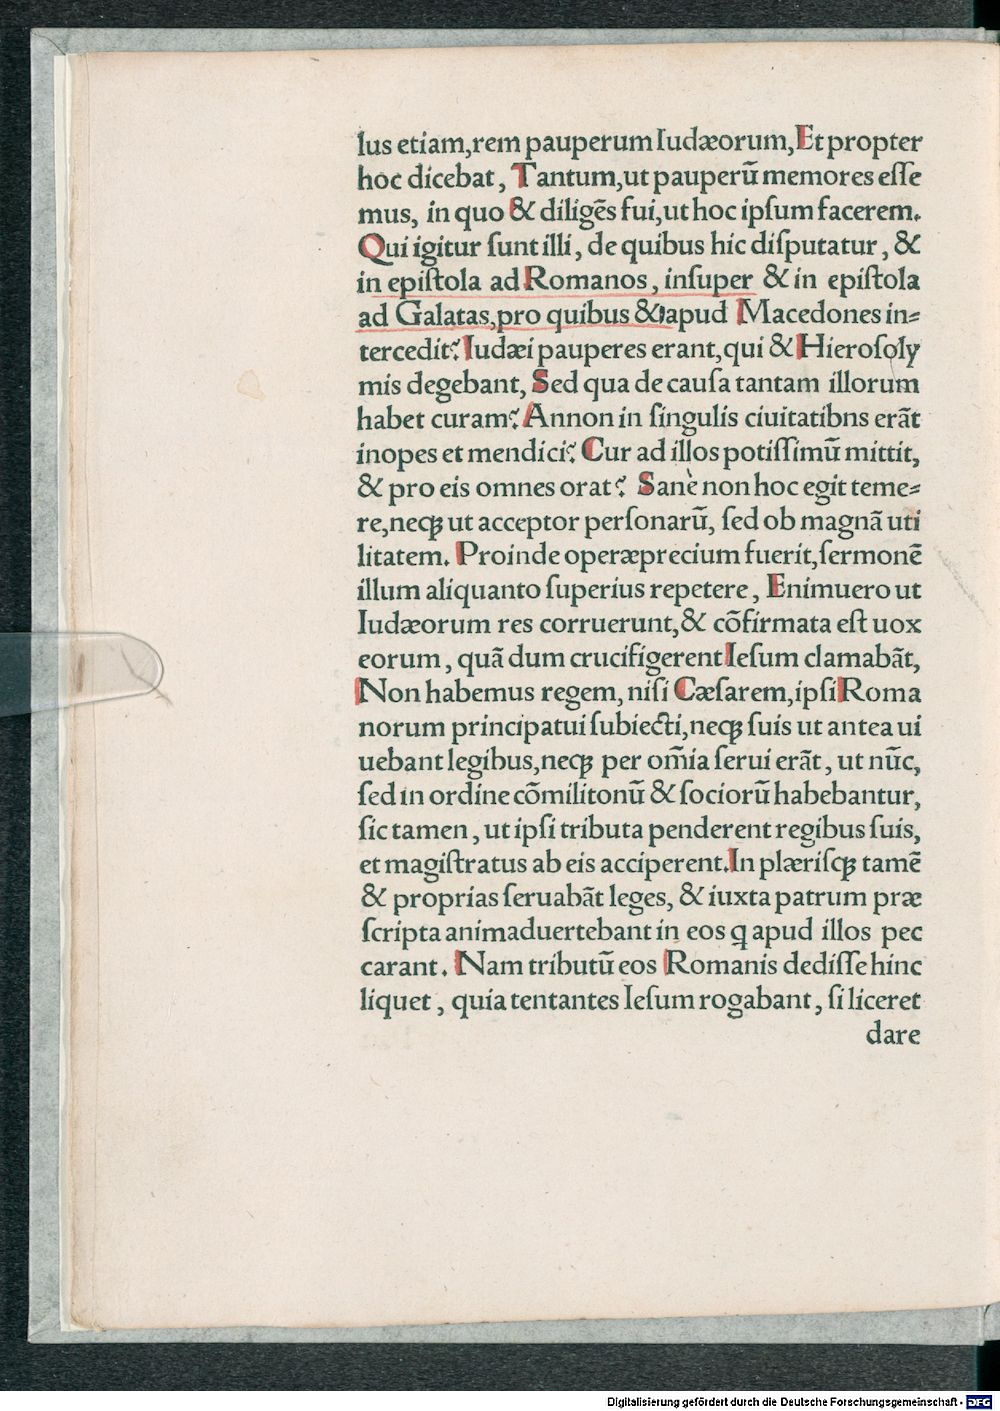 lus etiam,rem pauperum Iudæorum,Et propter
hoc dicebat, Tantum,ut pauperũ memores eſſe
mus, in quo & diligẽs fui,ut hoc ipſum facerem.
Qui igitur ſunt illi, de quibus hic diſputatur, &
in epiſtola ad Romanos, inſuper & in epiſtola
ad Galatas,pro quibus & apud Macedones in⸗
tercedit? Iudæi pauperes erant,qui & Hieroſoly
mis degebant, Sed qua de cauſa tantam illorum
habet curam? Annon in ſingulis ciuitatibns erãt
inopes et mendici? Cur ad illos potiſſimũ mittit,
& pro eis omnes orat? Sanè non hoc egit teme⸗
re,neqꝫ ut acceptor perſonarũ, ſed ob magnã uti
litatem. Proinde operæprecium fuerit,ſermonẽ
illum aliquanto ſuperius repetere, Enimuero ut
Iudæorum res corruerunt,& cõfirmata eſt uox
eorum, quã dum crucifigerent Ieſum clamabãt,
Non habemus regem, niſi Cæſarem,ipſi Roma
norum principatui ſubiecti,neqꝫ ſuis ut antea ui
uebant legibus,neqꝫ per om̃ia ſerui erãt, ut nũc,
ſed in ordine cõmilitonũ & ſociorũ habebantur,
ſic tamen, ut ipſi tributa penderent regibus ſuis,
et magiſtratus ab eis acciperent.In plæriſqꝫ tamẽ
& proprias ſeruabãt leges, & iuxta patrum præ
ſcripta animaduertebant in eos q apud illos pec
carant. Nam tributũ eos Romanis dediſſe hinc
liquet, quia tentantes Ieſum rogabant, ſi liceret
dare
Digitalisierung gefördert durch die Deutsche Forschungsgemeinschaft - DFG